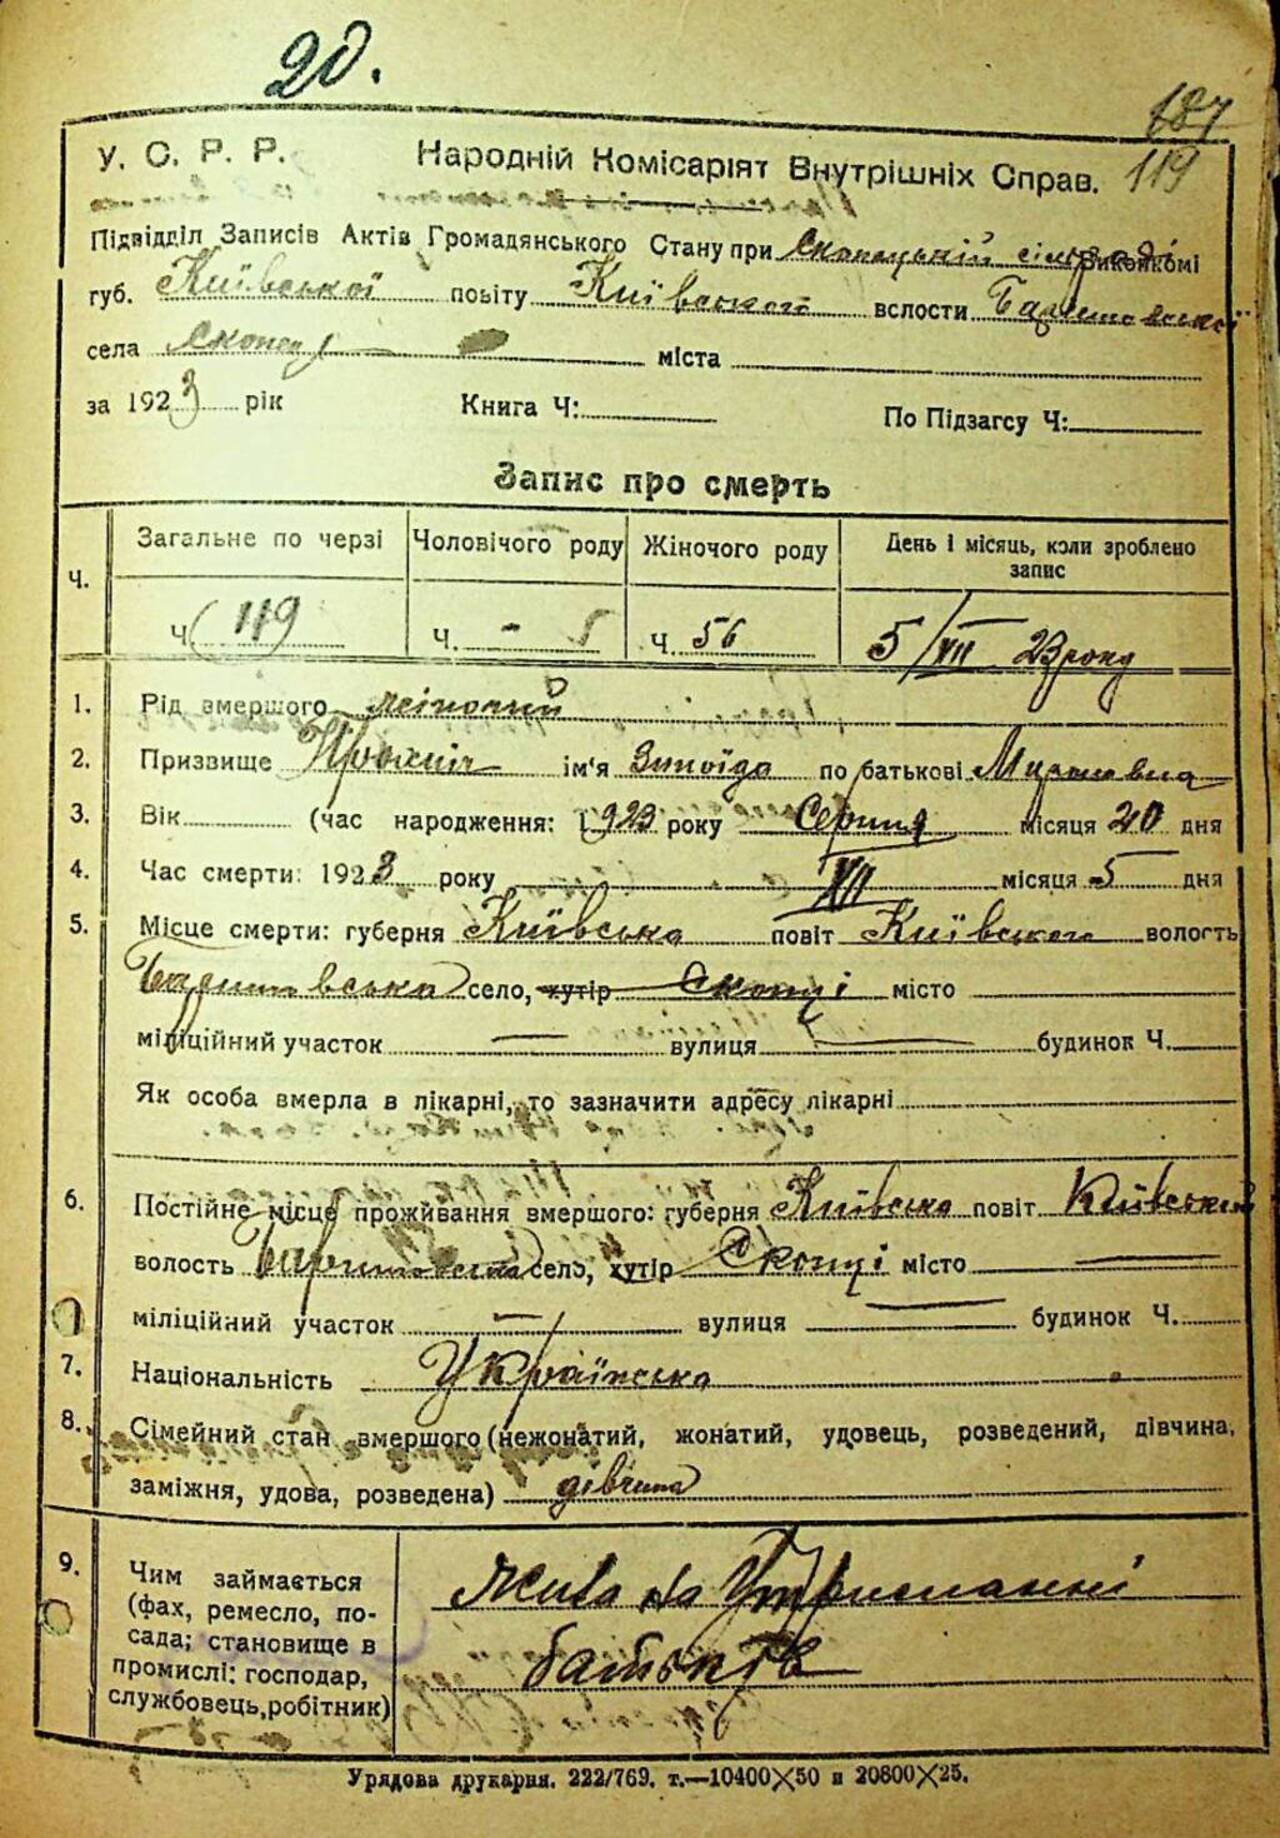 20.
187
119
У. С. Р. Р. Народній Комісаріят Внутрішніх Справ.
Підвідділ Записів Актів Громадянського Стану при Скопецькій сільраді виконкомі
губ. Київської повіту Київського вслости Баришовської
села Скопці міста
за 1923 рік Книга Ч: По Підзагсу Ч:
Запис про смерть
Ч. Загальне по черзі Чоловічого роду Жіночого роду День і місяць, коли зроблено запис
Ч. 119 Ч. - Ч. 56 5/XII 23 року
1. Рід вмершого жіночий
2. Призвище ім'я Зиноїда по батькові Миронівна
3. Вік (час народження: 1923 року Серпня місяця 20 дня
4. Час смерти: 1923 року XII місяця 5 дня
5. Місце смерти: губерня Київська повіт Київського волость
Баришовська село, хутір Скопці місто
міліційний участок — вулиця — будинок Ч.
Як особа вмерла в лікарні, то зазначити адресу лікарні
6. Постійне місце проживання вмершого: губерня Київська повіт Київський
волость Баришовська село, хутір Скопці місто —
міліційний участок — вулиця — будинок Ч.
7. Національність Українська
8. Сімейний стан вмершого (нежонатий, жонатий, удовець, розведений, дівчина,
заміжня, удова, розведена) дівчина
9. Чим займається
(фах, ремесло, по-
сада; становище в
промислі: господар,
службовець, робітник)
Жила на Утриманні
батьків
Урядова друкарня. 222/769. т.—10400×50 и 20800×25.